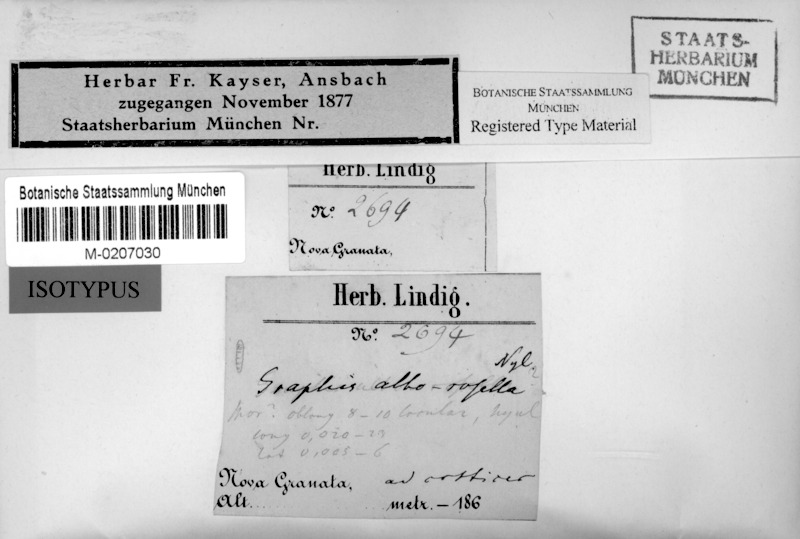 STAATS-
HERBARIUM
MÜNCHEN
Herbar Fr. Kayser, Ansbach
zugegangen November 1877
Staatsherbarium München Nr.
BOTANISCHE STAATSSAMMLUNG
MÜNCHEN
Registered Type Material
Botanische Staatssammlung München
M-0207030
ISOTYPUS
Herb. Lindig
No. 2694
Nova Granata,
Herb. Lindig.
No. 2694
Nyl.
Graphis albo-rosella
oblong 8-10 locular,
long 0,020-23
lat 0,005-6
Nova Granata, ad cortices
Alt. metr. - 186